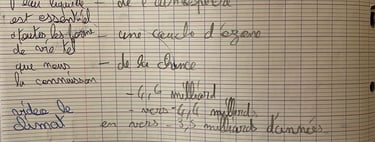 l'eau liquide - de l'atmosphère
est essentiel
à toutes les forme - une couche d'ozone
de vie tel
que nous - de la chance
la connaisson
- 4,6 milliard
vidéo le - vers - 4,4 milliards
climat en vers - 3,5 milliards d'années